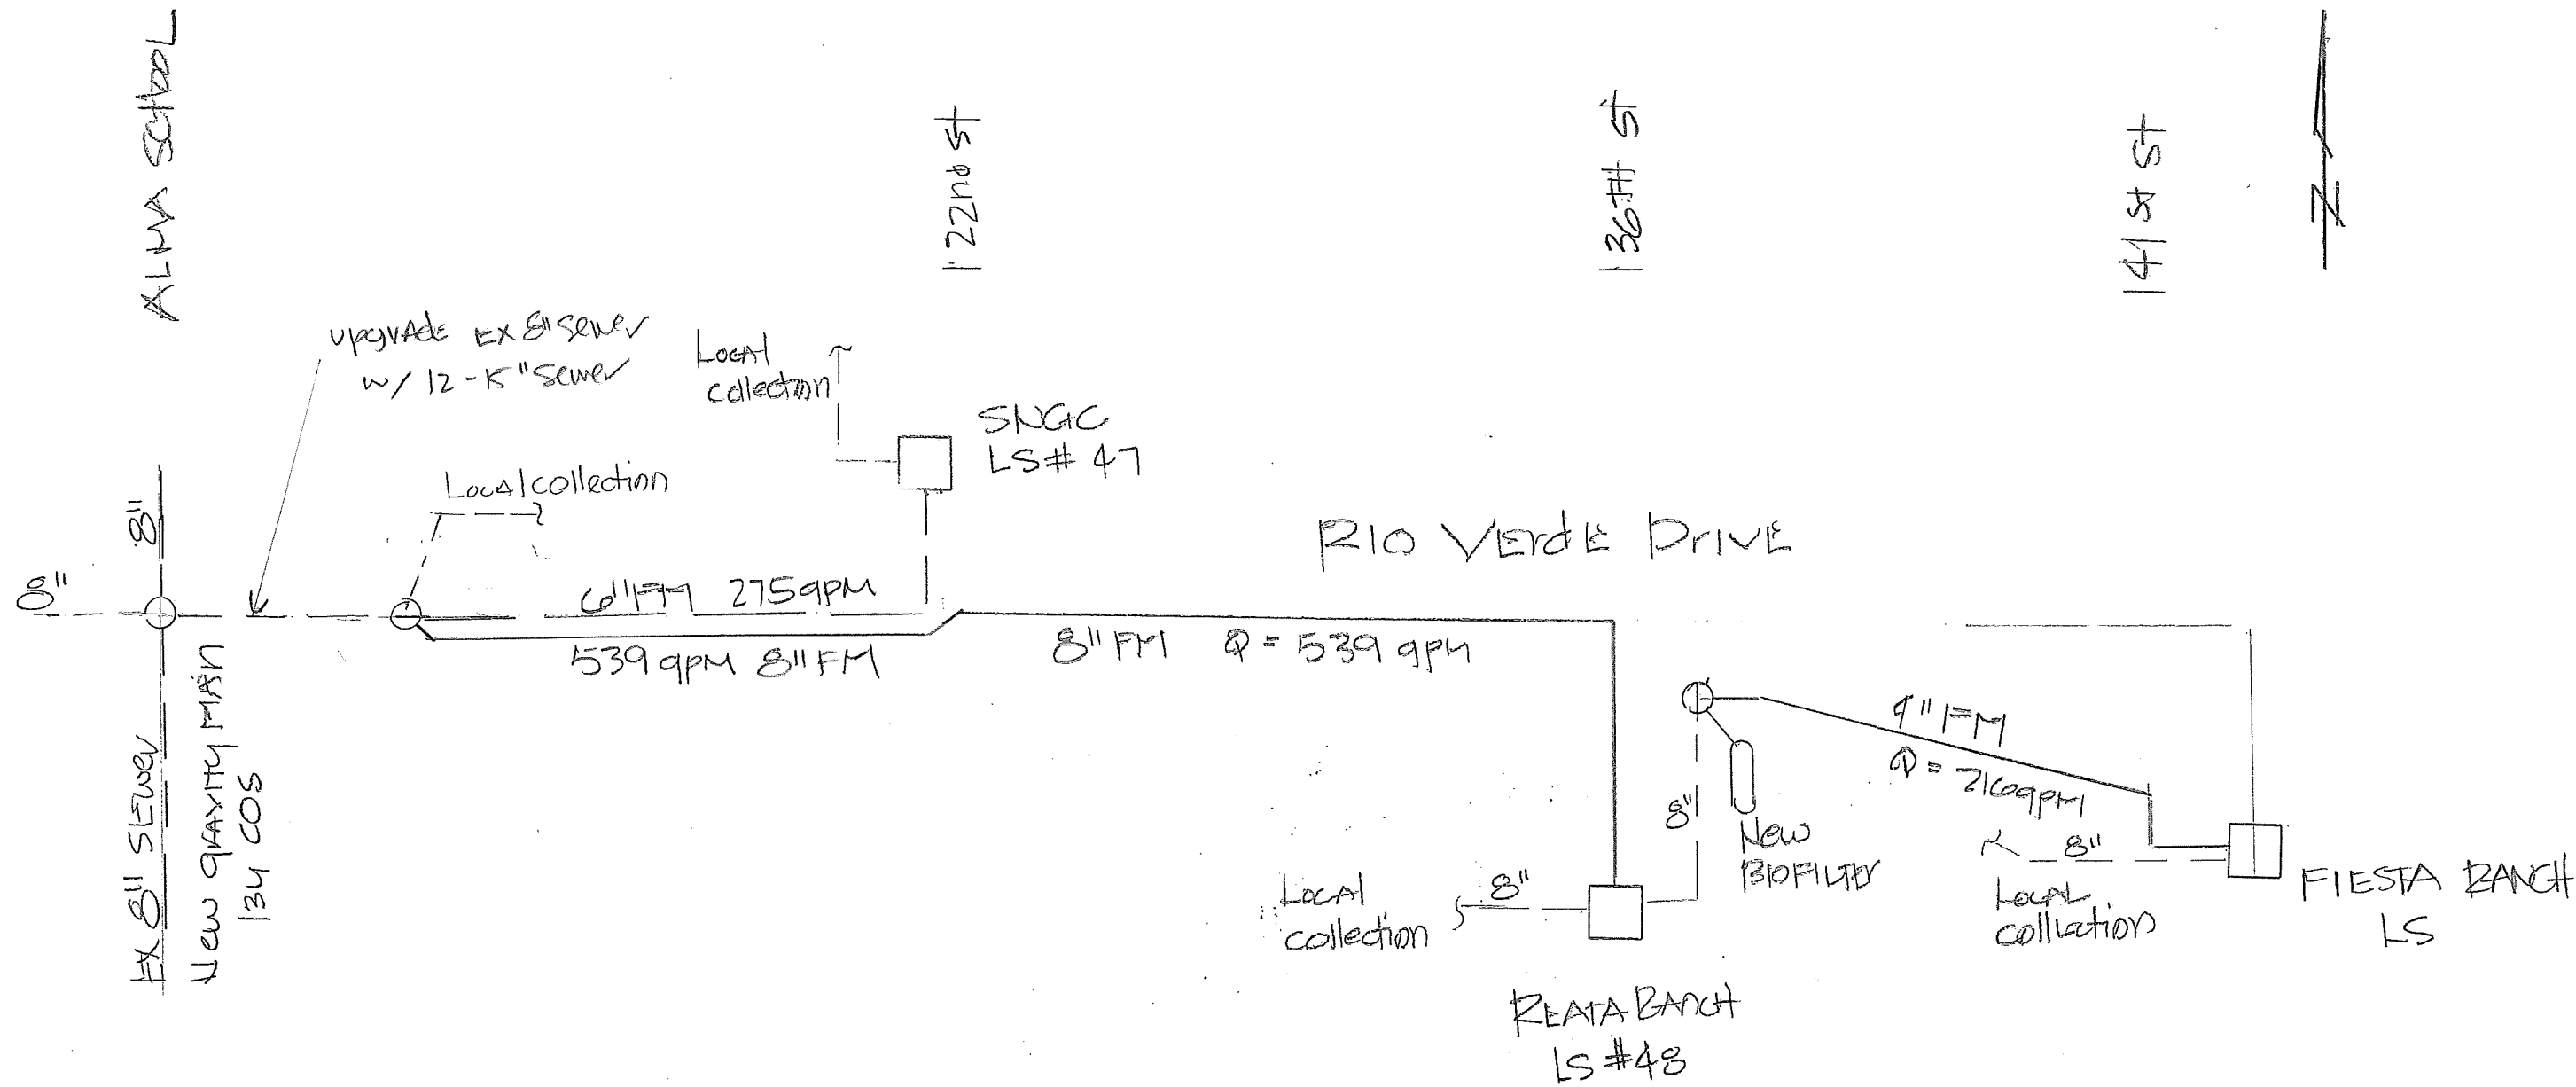 ALMA SCHOOL
122nd St
136TH St
141 st St
N
upgrade EX 8" sewer
w/ 12-15" Sewer
Local
collection
SNGC
LS# 47
Local collection
8"
8"
RIO VErdE DrIVE
6" FM 275 gpm
539 gpm 8" FM
8" FM Q = 539 gpm
EX 8" SEwer
New gravity MAIN
BY COS
4" FM
Q = 216 gpm
8"
New
BIOFILTEr
8"
Local
collection
8"
Local
collection
FIESTA RANCH
LS
REATA RANCH
LS #48